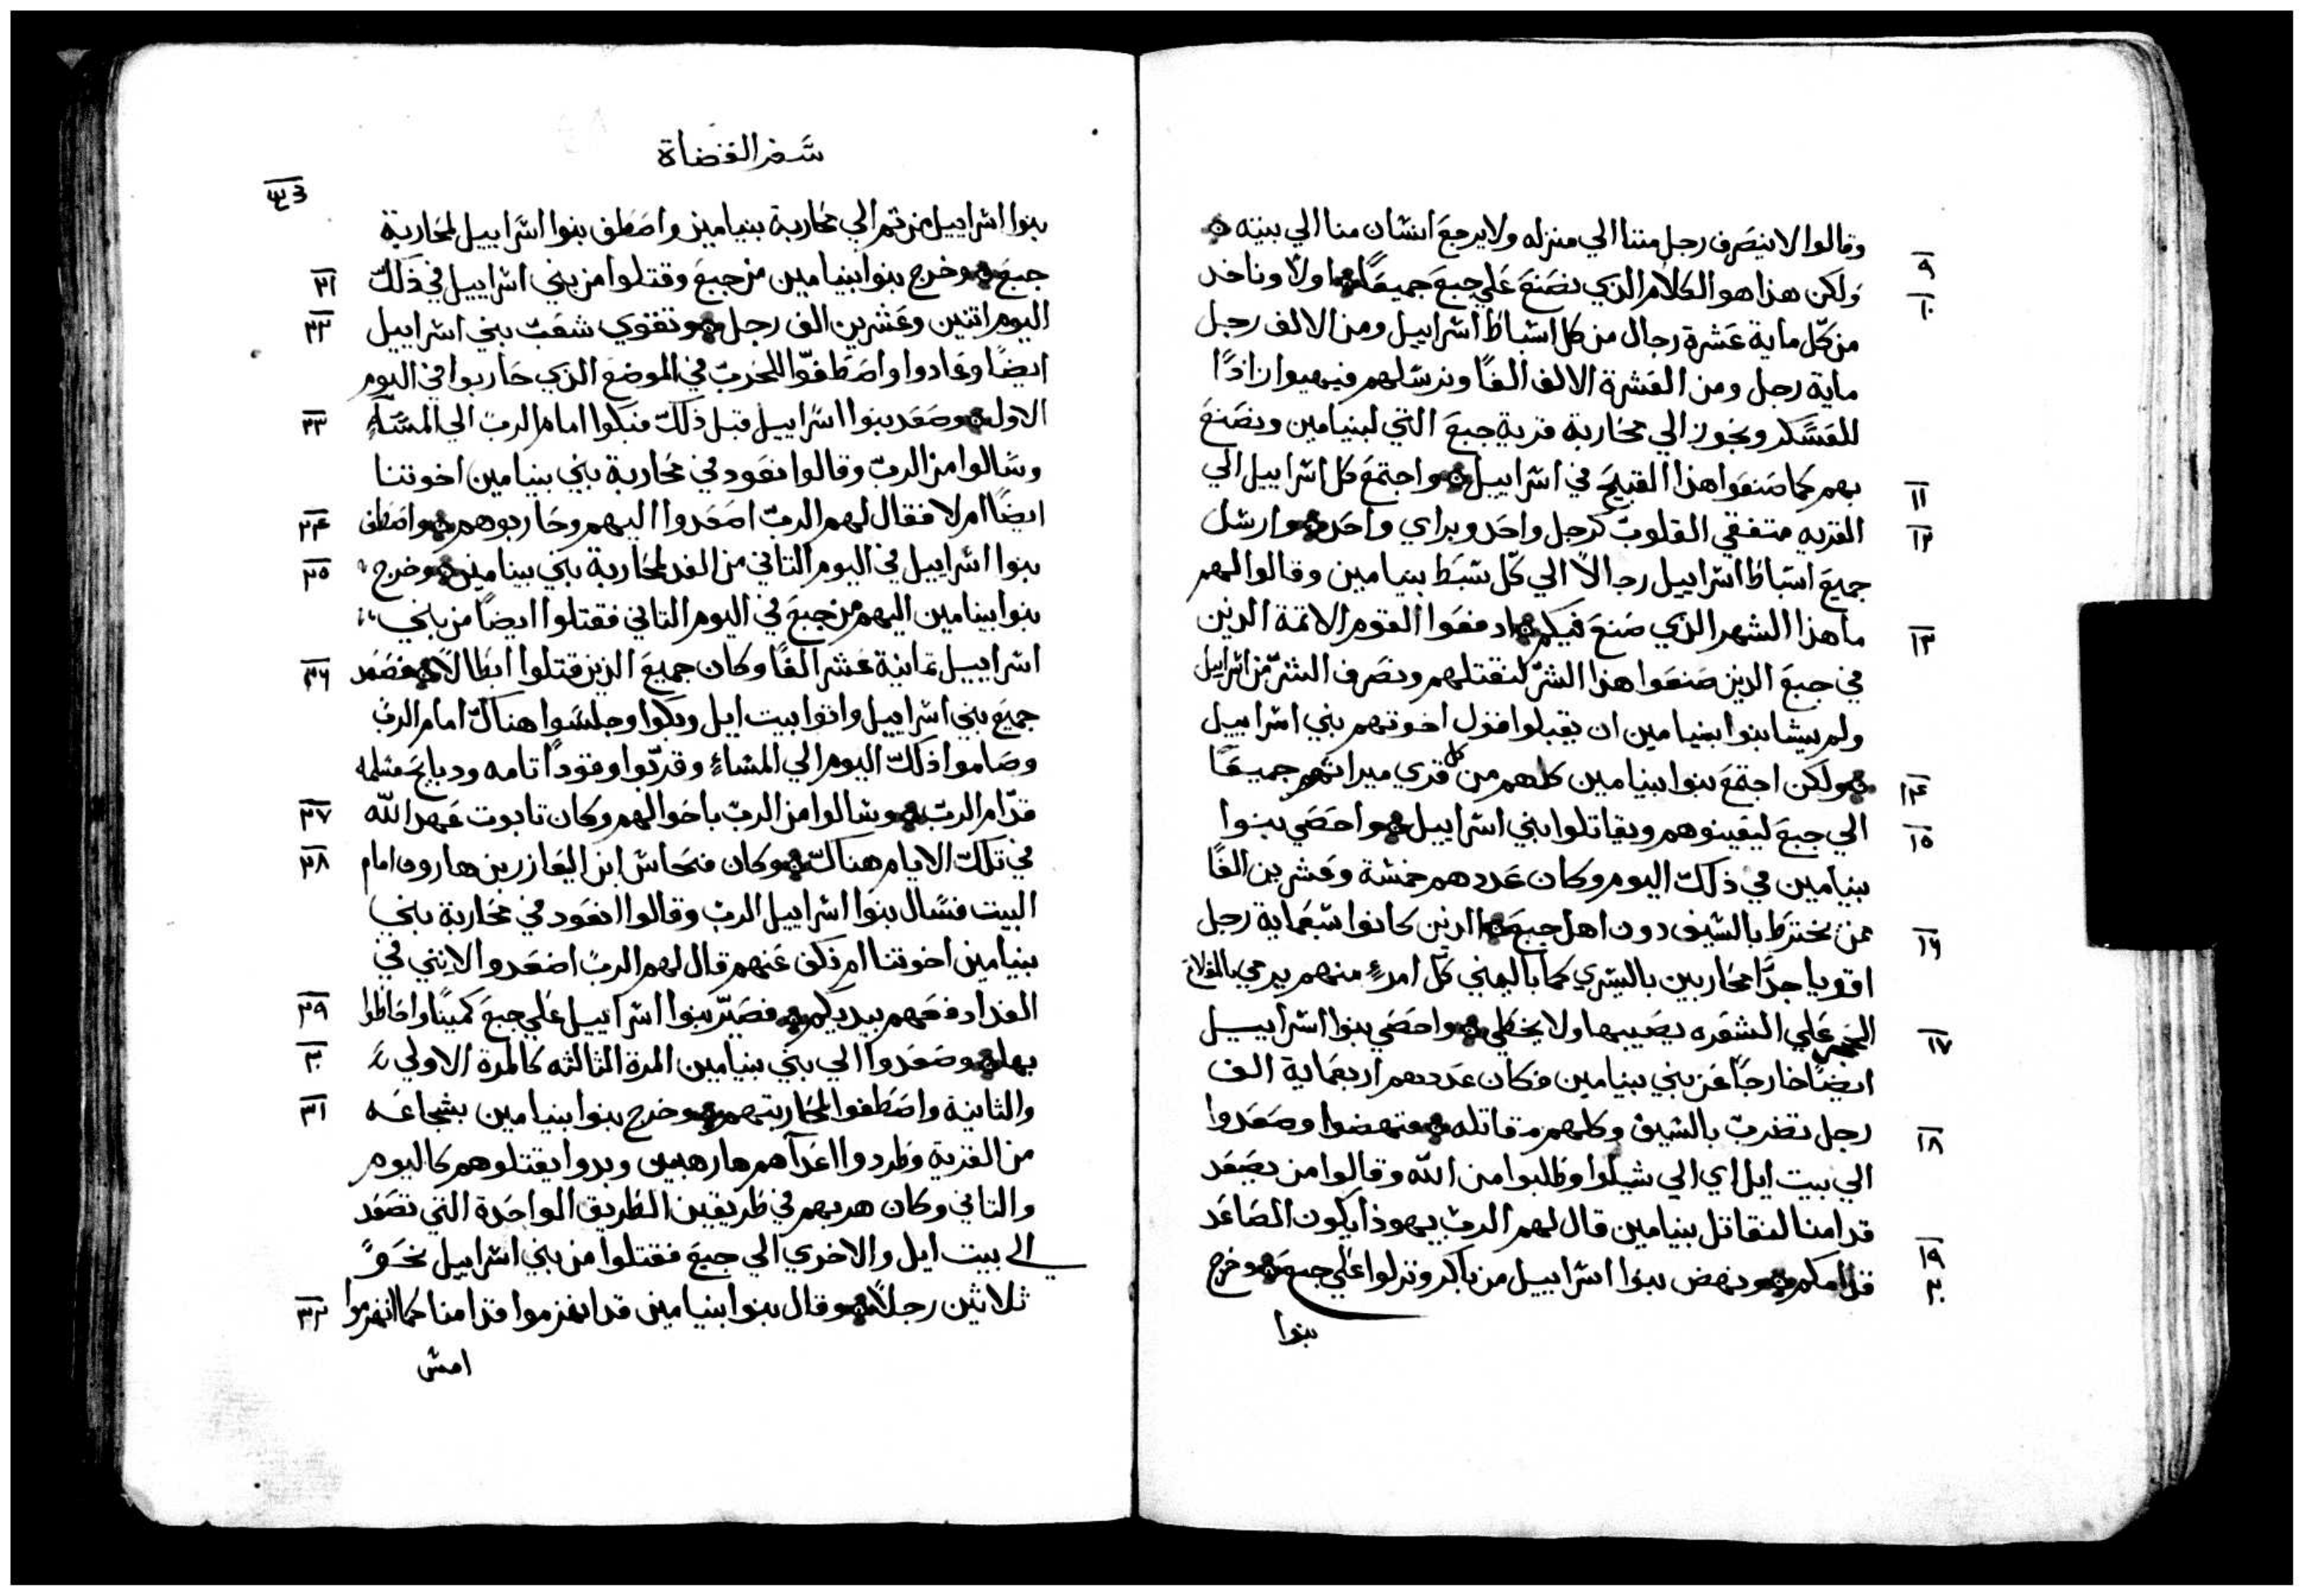 وقالوا لا ينصرف رجل مننا الي منزله ولا يرجع انسان منا الي بيته
٩ ولكن هذا هو الكلام الذي نصنع علي جبع جميعًا اولًا وناخد
١٠ من كل ماية عشرة رجال من كل اسباط اسراييل ومن الالف رجل
ماية رجل ومن العشرة الالف الفًا ونرسلهم فيهيوا زادًا
للعسكر ونجوز الي محاربة قرية جبع التي لبنيامين ونصنع
١١ بهم كما صنعوا هذا القبيح في اسراييل واجتمع كل اسراييل الي
١٢ القريه متفقي القلوب كرجل واحد وبراي واحد وارسل
جميع اسباط اسراييل رجالًا الي كل سبط بنيامين وقالوا لهم
١٣ ما هذا الشهر الذي صنع فيكم ادفعوا القوم الاتمة الدين
في جبع الدين صنعوا هذا الشر لنقتلهم ونصرف الشر من اسراييل
ولم يشا بنوا بنيامين ان يقبلوا قول اخوتهم بني اسراييل
١٤ ولكن اجتمع بنوا بنيامين كلهم من كل قري ميراتهم جميعًا
١٥ الي جبع ليعينوهم ويقاتلوا بني اسراييل واحصي بنوا
بنيامين في ذلك اليوم وكان عددهم خمسة وعشرين الفًا
١٦ ممن يخترط بالسيف دون اهل جبع الدين كانوا سبعماية رجل
اقويا جدًا محاربين باليسري كما باليمني كل امرءٍ منهم يرمي بالمقلاع
١٧ الحجر علي الشعره يصيبها ولا يخطي واحصي بنوا اسراييل
ايضًا خارجًا عن بني بنيامين فكان عددهم اربعماية الف
١٨ رجل تضرب بالسيف وكلهم مقاتله فنهضوا وصعدوا
الي بيت ايل اي الي شيلوا وطلبوا من الله وقالوا من يصعد
قدامنا لنقاتل بنيامين قال لهم الرب يهوذا يكون الصاعد
١٩ ٢٠ قدامكم ونهض بنوا اسراييل من باكر ونزلوا علي جبع وخرج
بنوا
سفر القضاة
بنوا اسراييل من تم الي محاربة بنيامين واصطف بنوا اسراييل لمحاربة
٢١ جبع وخرج بنوا بنيامين من جبع وقتلوا من بني اسراييل في ذلك
٢٢ اليوم اتنين وعشرين الف رجل وتقوي شعب بني اسراييل
ايضًا وعادوا واصطفوا للحرب في الموضع الذي حاربوا في اليوم
٢٣ الاول وصعد بنوا اسراييل قبل ذلك فبكوا امام الرب الي المساء
وسالوا من الرب وقالوا نعود في محاربة بني بنيامين اخوتنا
٢٤ ايضًا ام لا فقال لهم الرب اصعدوا اليهم وحاربوهم واصطف
٢٥ بنوا اسراييل في اليوم التاني من الغد لمحاربة بني بينامين وخرج
بنوا بينامين اليهم من جبع في اليوم التاني فقتلوا ايضًا من بني
٢٦ اسراييل تمانية عشر الفًا وكان جميع الذين قتلوا ابطالًا فصعد
جميع بني اسراييل واتوا بيت ايل وبكوا وجلسوا هناك امام الرب
وصاموا ذلك اليوم الي المساءِ وقربوا وقودًا تامه ودبايح مسلمه
٢٧ قدام الرب وسالوا من الرب باحوالهم وكان تابوت عهد الله
٢٨ في تلك الايام هناك وكان فنحاس ابن اليعازر بن هارون امام
البيت فسال بنوا اسراييل الرب وقالوا انعود في محاربة بني
بنيامين اخوتنا ام نكف عنهم قال لهم الرب اصعدوا لانني في
٢٩ الغد ادفعهم بيديكم فصير بنوا اسراييل علي جبع كمينًا واحاطوا
٣٠ بها وصعدوا الي بني بنيامين المرة الثالثه كالمرة الاولي
٣١ والثانية واصطفوا لمحاربتهم وخرج بنوا بنيامين بشجاعه
من القرية وطردوا اعدآهم هارهبين وبدوا يقتلوهم كاليوم
والتاني وكان هربهم في طريقين الطريق الواحدة التي تصعد
الي بيت ايل والاخري الي جبع فقتلوا من بني اسراييل نحوً
٣٢ ثلاثين رجلًا وقال بنوا بنيامين قد انهزموا قدامنا كما انهزموا
امس